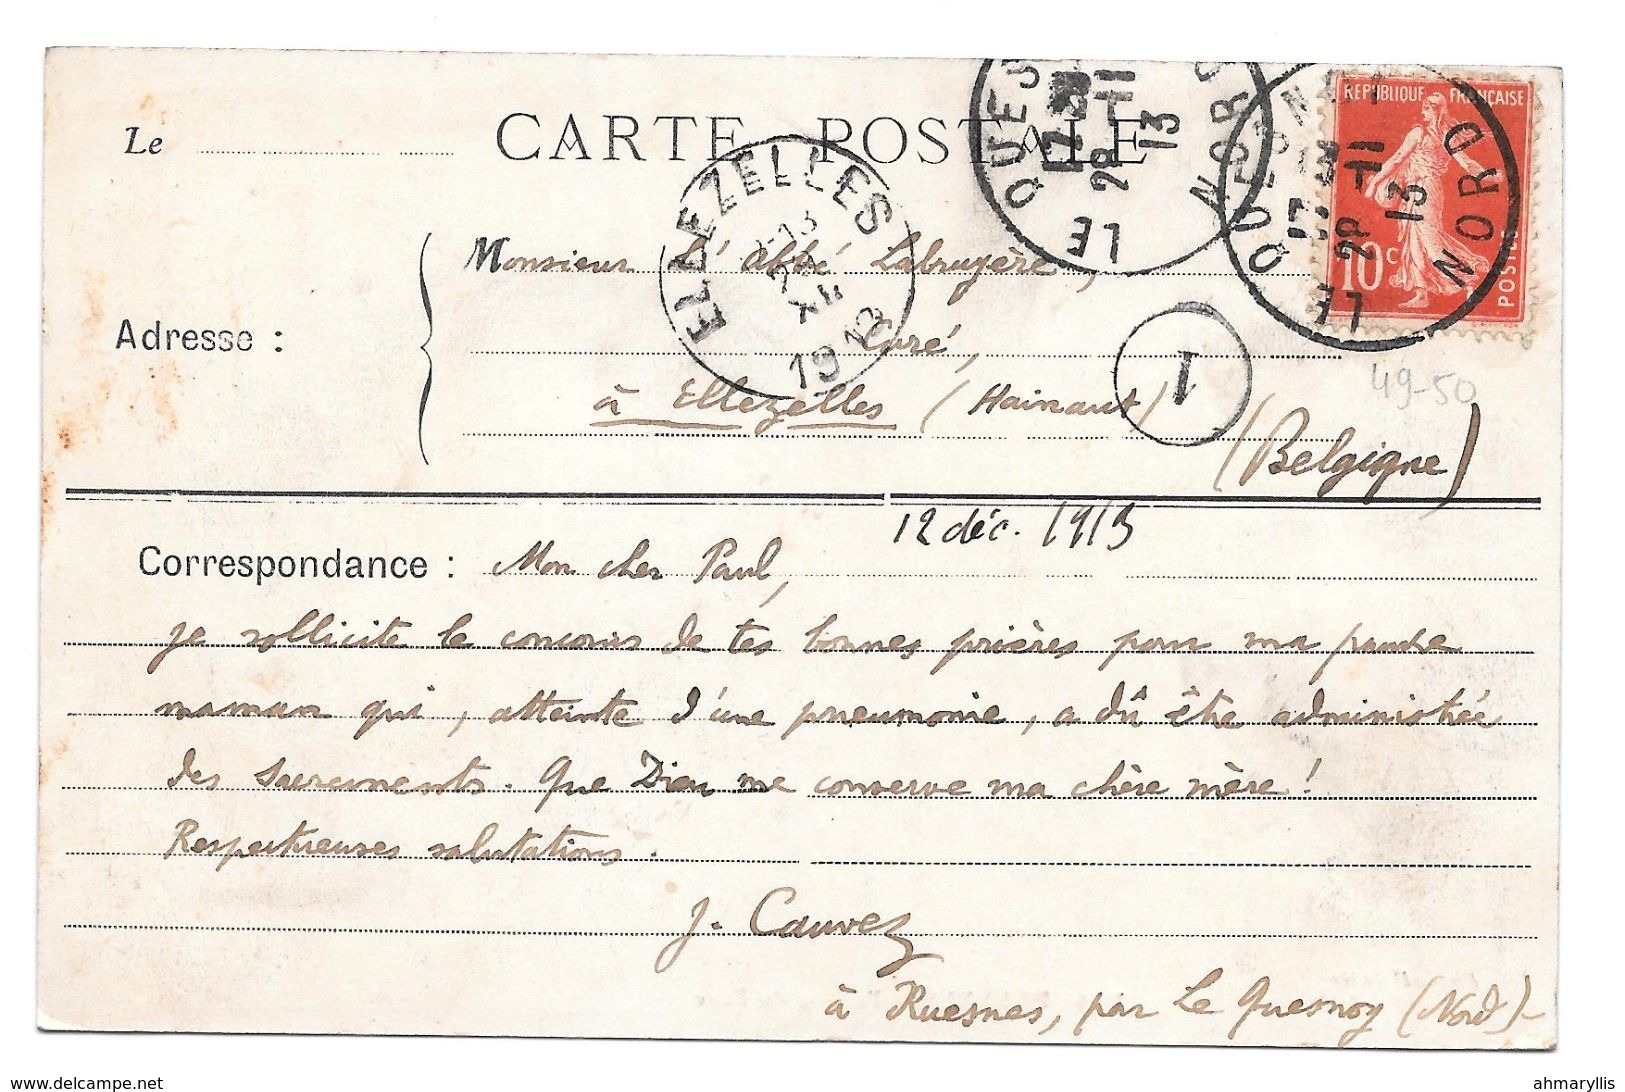 CARTE POSTALE
Le
LE QUESNOY NORD
28-11
13
LE QUESNOY NORD
28-11
13
REPUBLIQUE FRANÇAISE
10c
POSTES
ELLEZELLES
1913
Monsieur l'abbé Labruyère,
Adresse :
Curé,
1
à Ellezelles (Hainaut)
49-50
(Belgique)
12 déc. 1913
Correspondance : Mon cher Paul,
je sollicite le concours de tes bonnes prières pour ma pauvre
maman qui, atteinte d'une pneumonie, a dû être administrée
des sacrements. Que Dieu me conserve ma chère mère !
Respectueuses salutations.
J. Cauvez
à Ruesnes, par Le Quesnoy (Nord)-
www.delcampe.net
ahmaryllis